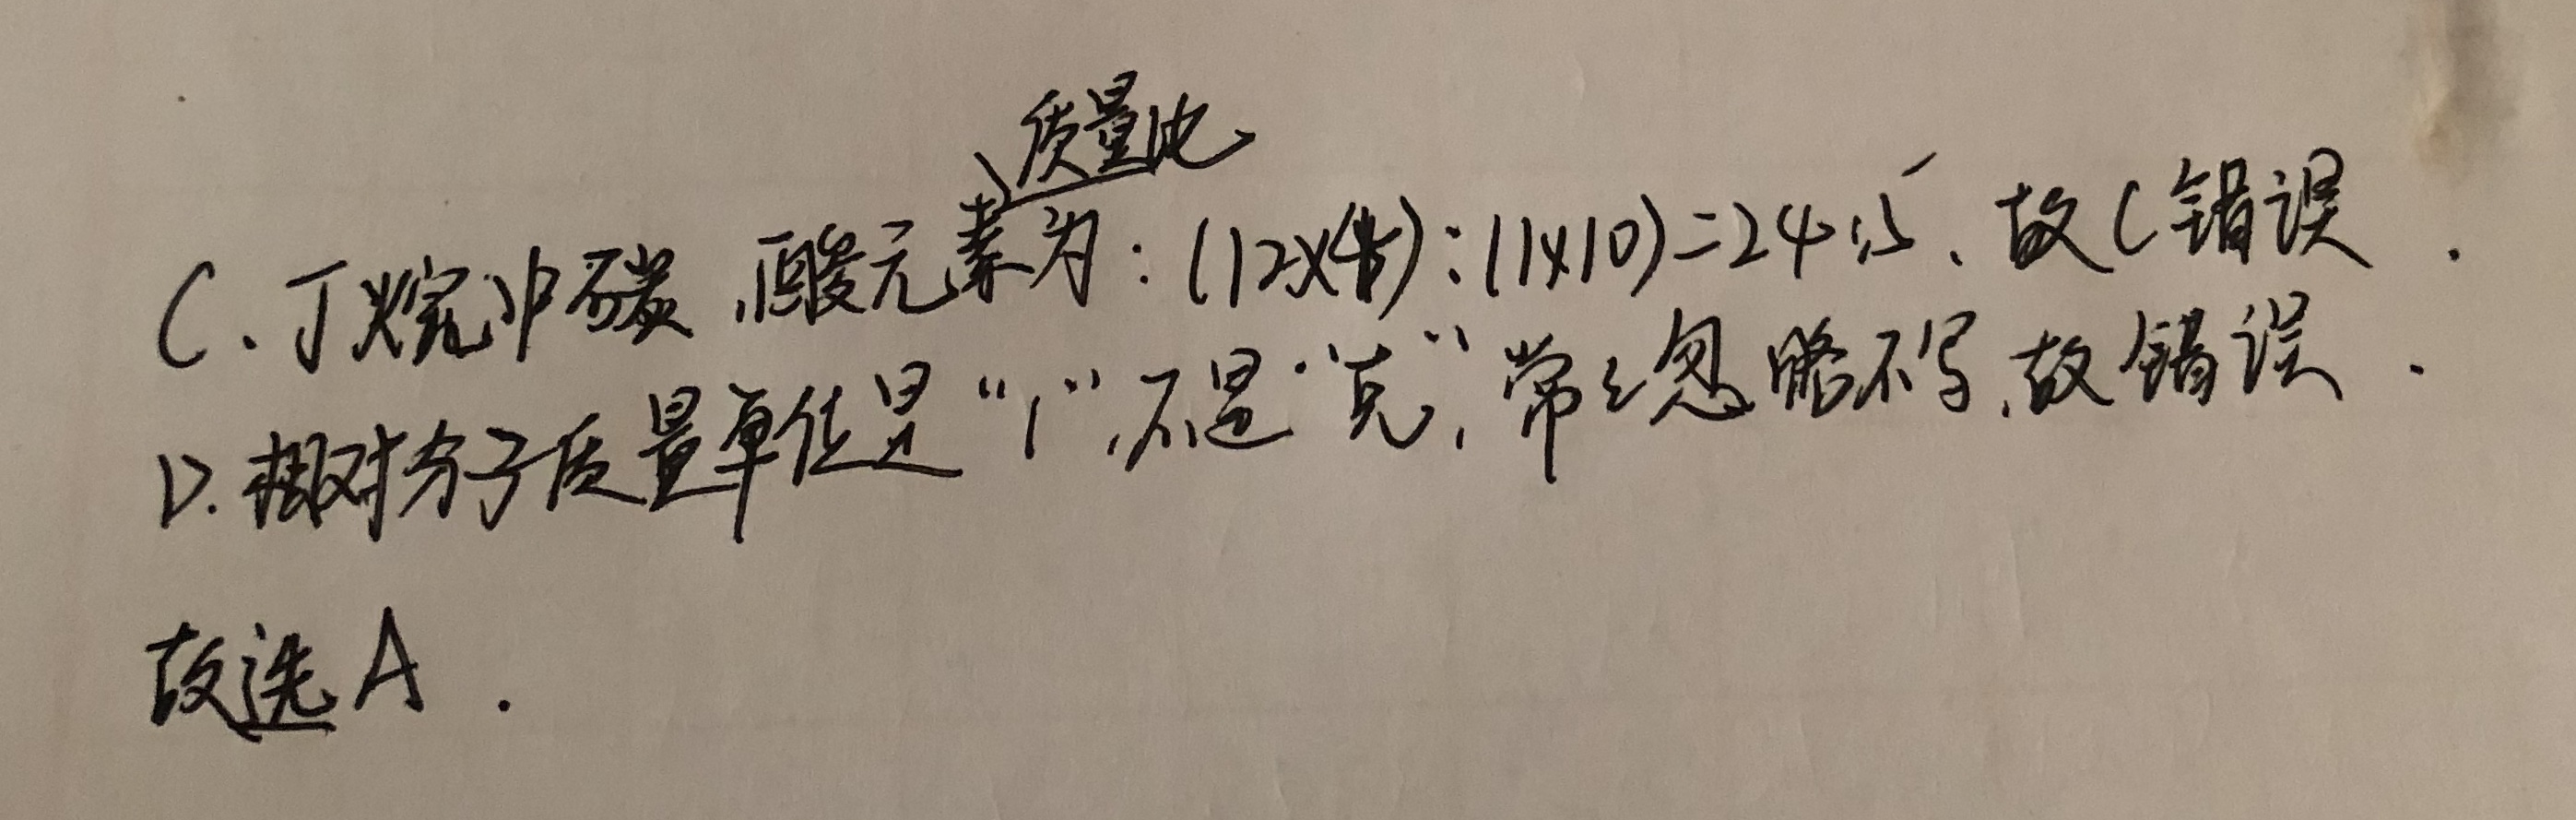 质量比
C.丁烷中碳、酸元素为:(12×4):(1×10)=24:5、故C错误.
D.相对分子质量单位是“1”,不是“克”,常常忽略不写,故错误.
故选A.